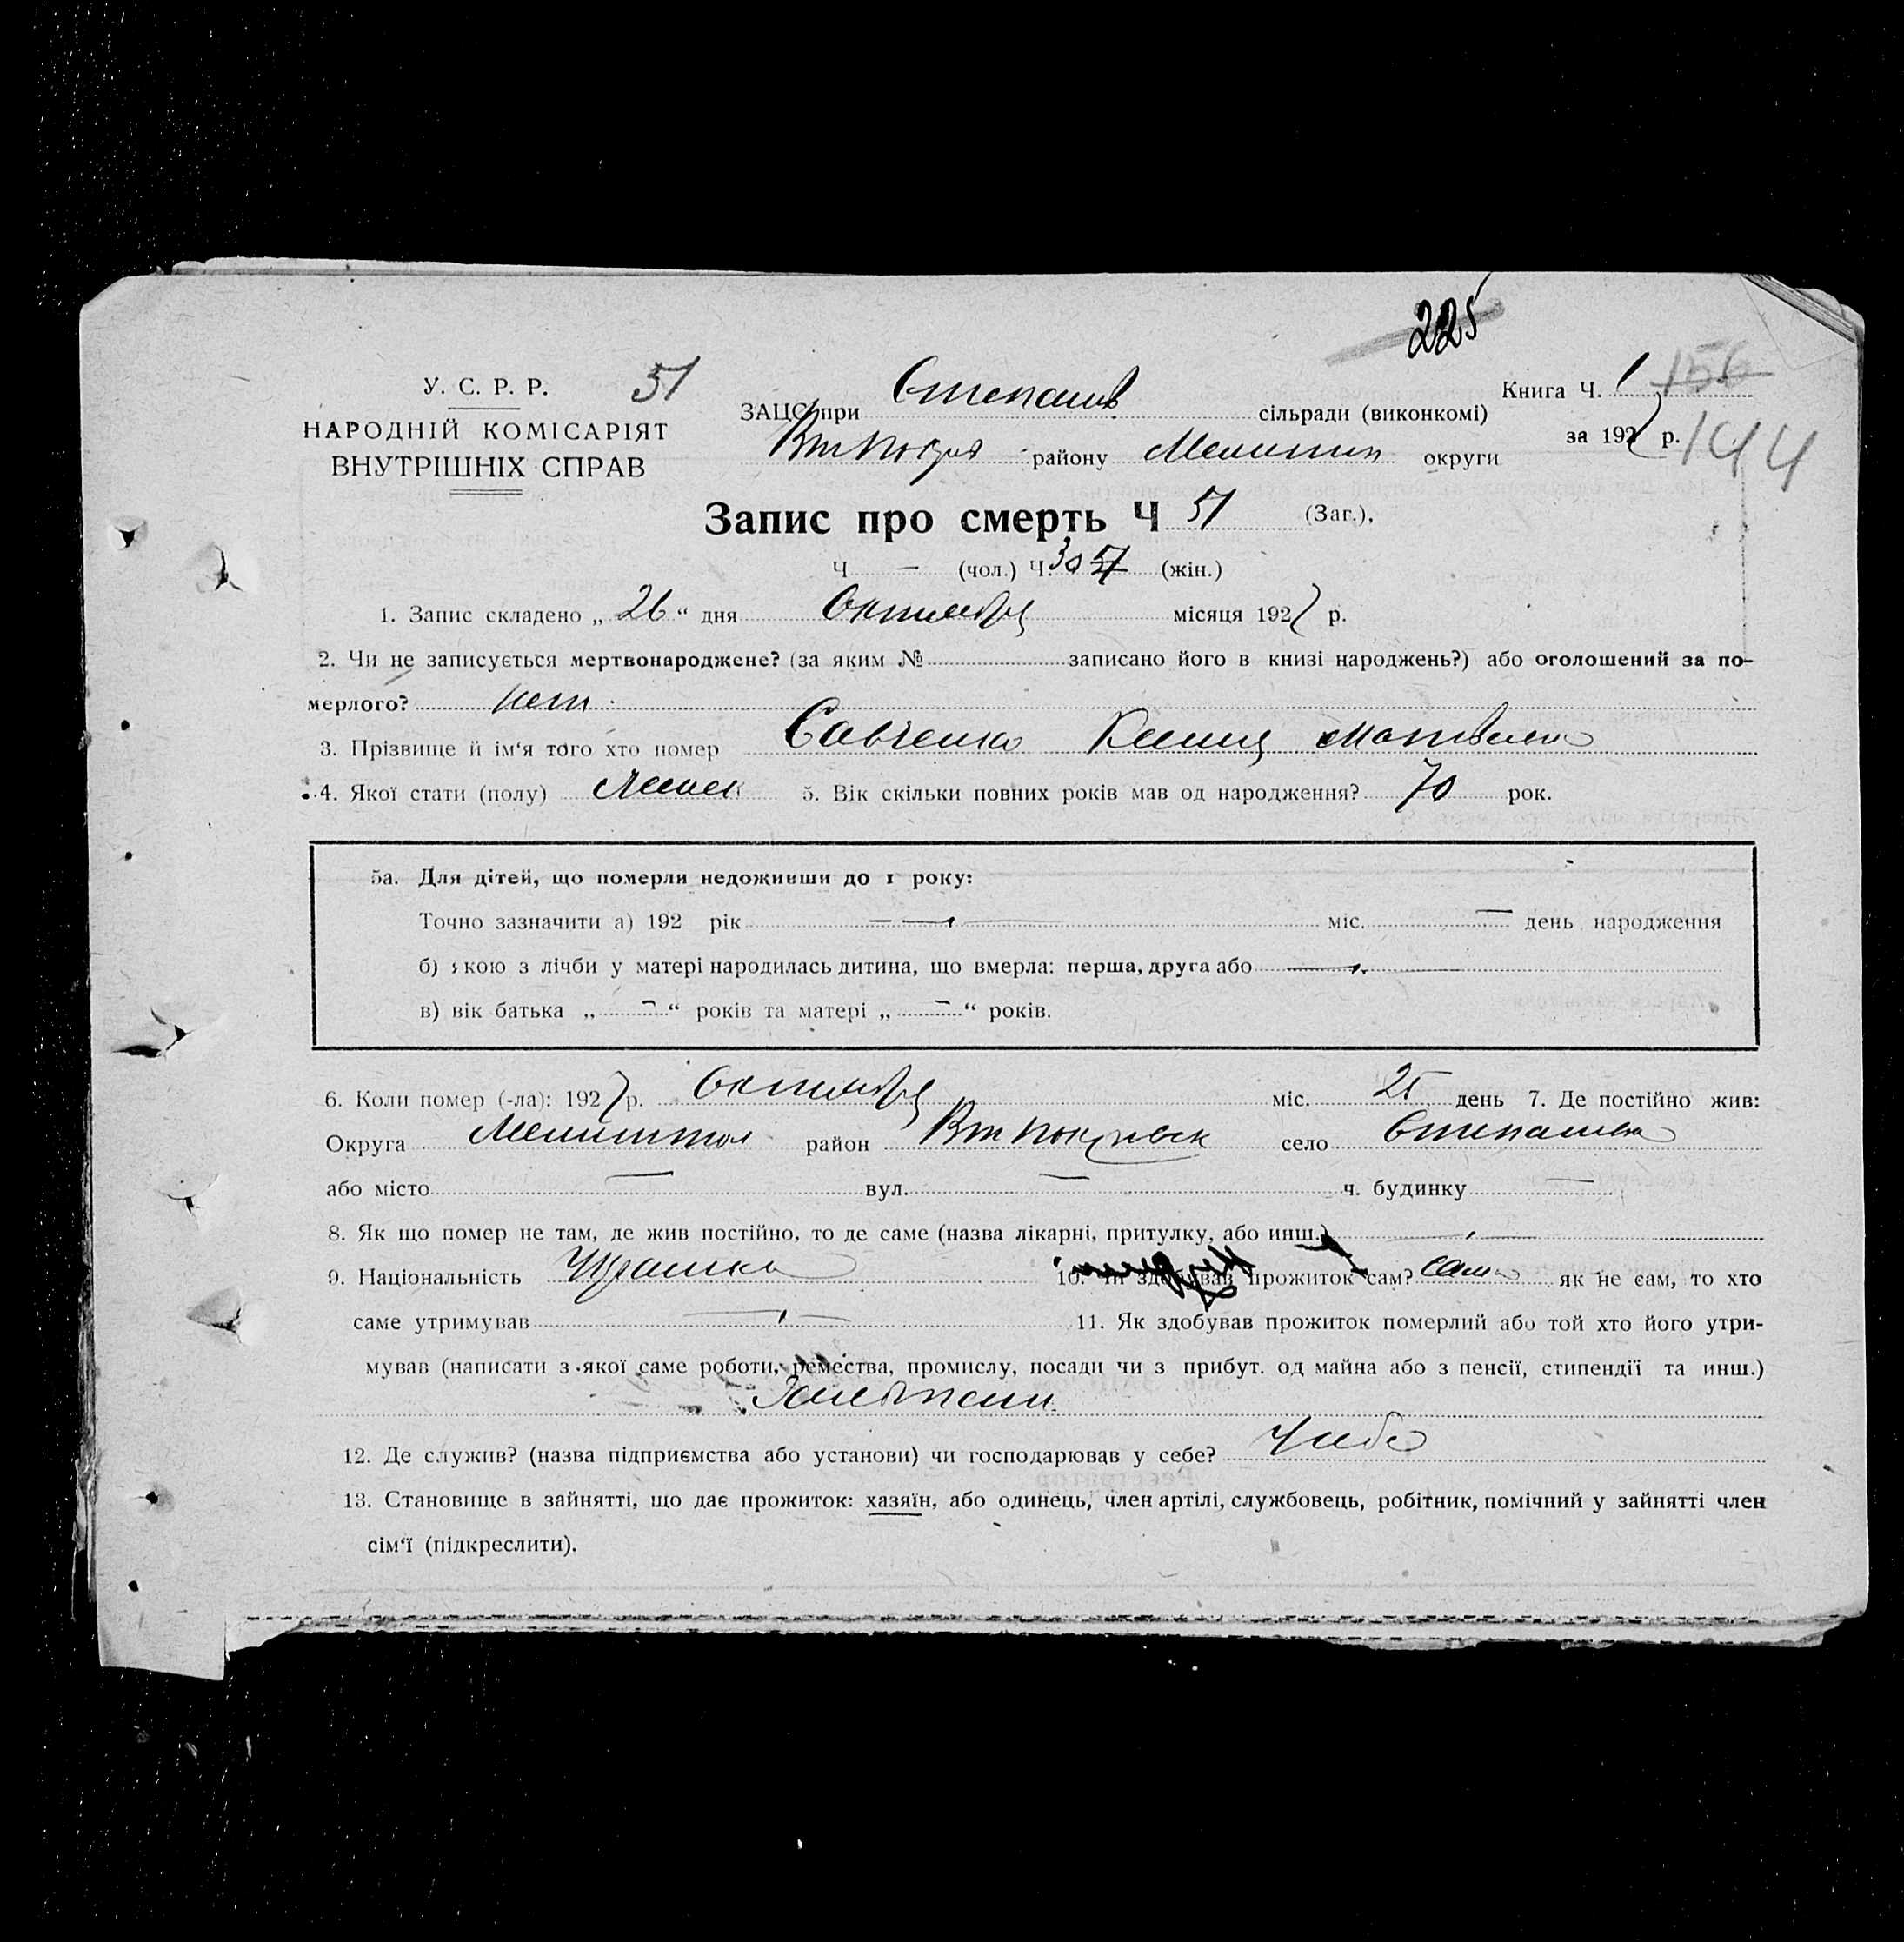 225
У. С. Р. Р. 51 ЗАЦС при Степанов сільради (виконкомі) Книга Ч. 1 156
НАРОДНІЙ КОМІСАРІЯТ
ВНУТРІШНІХ СПРАВ
району Мелитоп округи за 1927 р. 144
Запис про смерть Ч 51 (Заг.),
Ч — (чол.) Ч. 30 (жін.)
1. Запис складено „ 26 “ дня Октября місяця 1927 р.
2. Чи не записується мертвонароджене? (за яким № записано його в книзі народжень?) або оголошений за по-
мерлого? нет.
3. Прізвище й ім'я того хто помер Савченко
4. Якої стати (полу) Женск 5. Вік скільки повних років мав од народження? 70 рок.
5а. Для дітей, що померли недоживши до 1 року:
Точно зазначити а) 192 рік — — міс. — день народження
б) якою з лічби у матері народилась дитина, що вмерла: перша, друга або —
в) вік батька „ — “ років та матері „ — “ років.
6. Коли помер (-ла): 1927 р. Октября міс. 25 день 7. Де постійно жив:
Округа Мелитопол район Вт Покровск село Степановка
або місто — вул. — ч. будинку —
8. Як що помер не там, де жив постійно, то де саме (назва лікарні, притулку, або инш.) —
9. Національність Украинка 10. Чи здобував прожиток сам? сама як не сам, то хто
саме утримував — 11. Як здобував прожиток померлий або той хто його утри-
мував (написати з якої саме роботи, ремества, промислу, посади чи з прибут. од майна або з пенсії, стипендії та инш.)
12. Де служив? (назва підприємства або установи) чи господарював у себе?
13. Становище в зайнятті, що дає прожиток: хазяїн, або одинець, член артілі, службовець, робітник, помічний у зайнятті член
сім'ї (підкреслити).